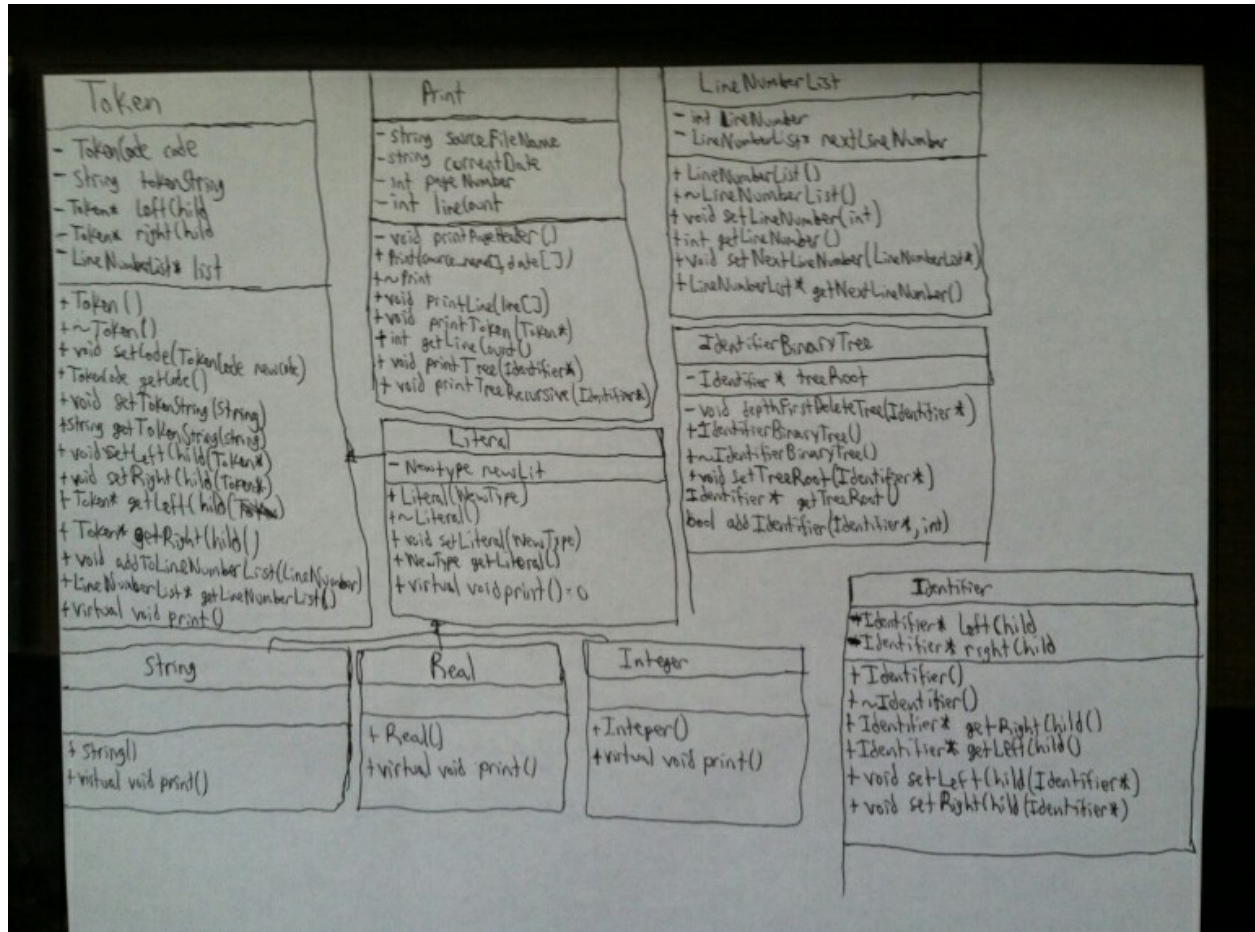 Token
- TokenCode code
- String tokenString
- Token* leftChild
- Token* rightChild
- LineNumberList* list
+ Token()
+ ~Token()
+ void setCode(TokenCode newCode)
+ TokenCode getCode()
+ void setTokenString(String)
+ string getTokenString(string)
+ void setLeftChild(Token*)
+ void setRightChild(Token*)
+ Token* getLeftChild(
+ Token* getRightChild()
+ void addToLineNumberList(LineNumber)
+ LineNumberList* getLineNumberList()
+ virtual void print()
Print
- string sourceFileName
- string currentDate
- int pageNumber
- int lineCount
- void printPageHeader()
+ Print(source_name[], date[])
+ ~Print
+ void printLine(line[])
+ void printToken(Token*)
+ int getLineCount()
+ void printTree(Identifier*)
+ void printTreeRecursive(Identifier*)
LineNumberList
- int LineNumber
- LineNumberList* nextLineNumber
+ LineNumberList()
+ ~LineNumberList()
+ void setLineNumber(int)
+ int getLineNumber()
+ void setNextLineNumber(LineNumberList*)
+ LineNumberList* getNextLineNumber()
Literal
- Newtype newLit
+ Literal(NewType)
+ ~Literal()
+ void setLiteral(NewType)
+ NewType getLiteral()
+ virtual void print()=0
IdentifierBinaryTree
- Identifier* treeRoot
- void depthFirstDeleteTree(Identifier*)
+ IdentifierBinaryTree()
+ ~IdentifierBinaryTree()
+ void setTreeRoot(Identifier*)
Identifier* getTreeRoot()
bool addIdentifier(Identifier*, int)
String
+ String()
+ virtual void print()
Real
+ Real()
+ virtual void print()
Integer
+ Integer()
+ virtual void print()
Identifier
Identifier* leftChild
Identifier* rightChild
+ Identifier()
+ ~Identifier()
+ Identifier* getRightChild()
+ Identifier* getLeftChild()
+ void setLeftChild(Identifier*)
+ void setRightChild(Identifier*)